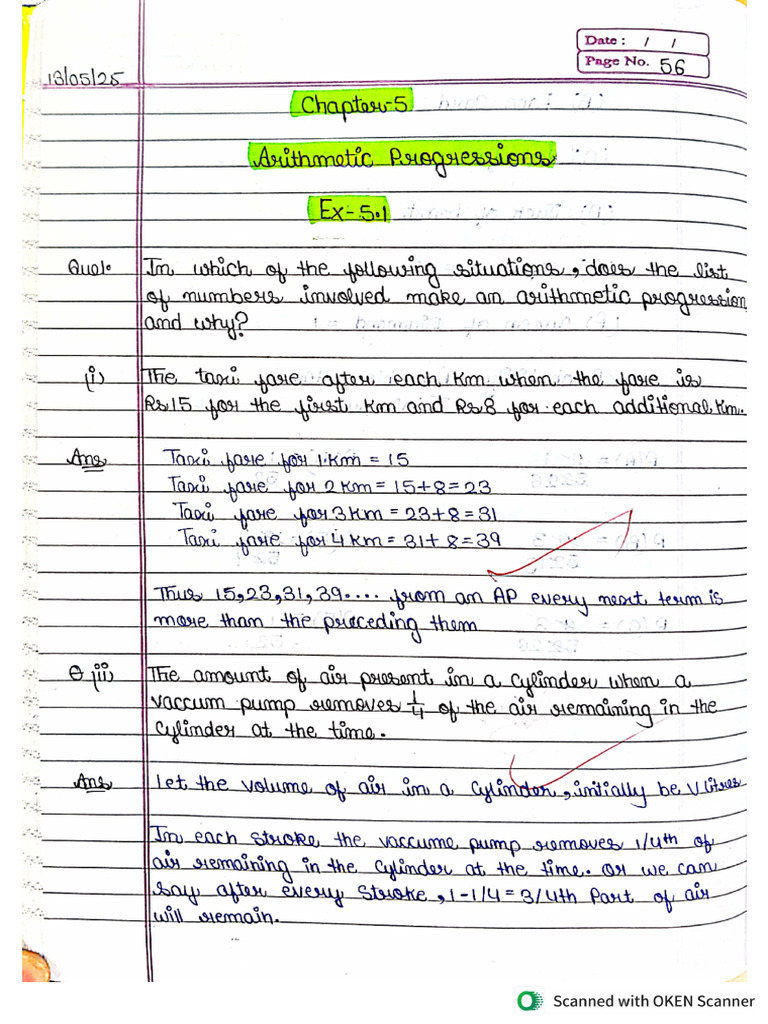 Date : / /
Page No. 56
13/05/25
Chapter-5
Arithmetic Progressions
Ex-5.1
Que1. In which of the following situations, does the list
of numbers involved make an arithmetic progression
and why?
(i) The taxi fare after each Km when the fare is
Rs15 for the first Km and Rs8 for each additional Km.
Ans Taxi fare for 1 Km = 15
Taxi fare for 2 Km = 15+8=23
Taxi fare for 3 Km = 23+8=31
Taxi fare for 4 Km = 31+8=39
Thus 15,23,31,39.... from an AP every next term is
more than the preceding them
Q (ii) The amount of air present in a cylinder when a
vaccum pump removes 1/4 of the air remaining in the
cylinder at the time.
Ans let the volume of air in a cylinder, initially be V litres
In each stroke the vaccume pump removes 1/4th of
air remaining in the cylinder at the time. or we can
say after every stroke, 1-1/4=3/4th Part of air
will remain.
Scanned with OKEN Scanner